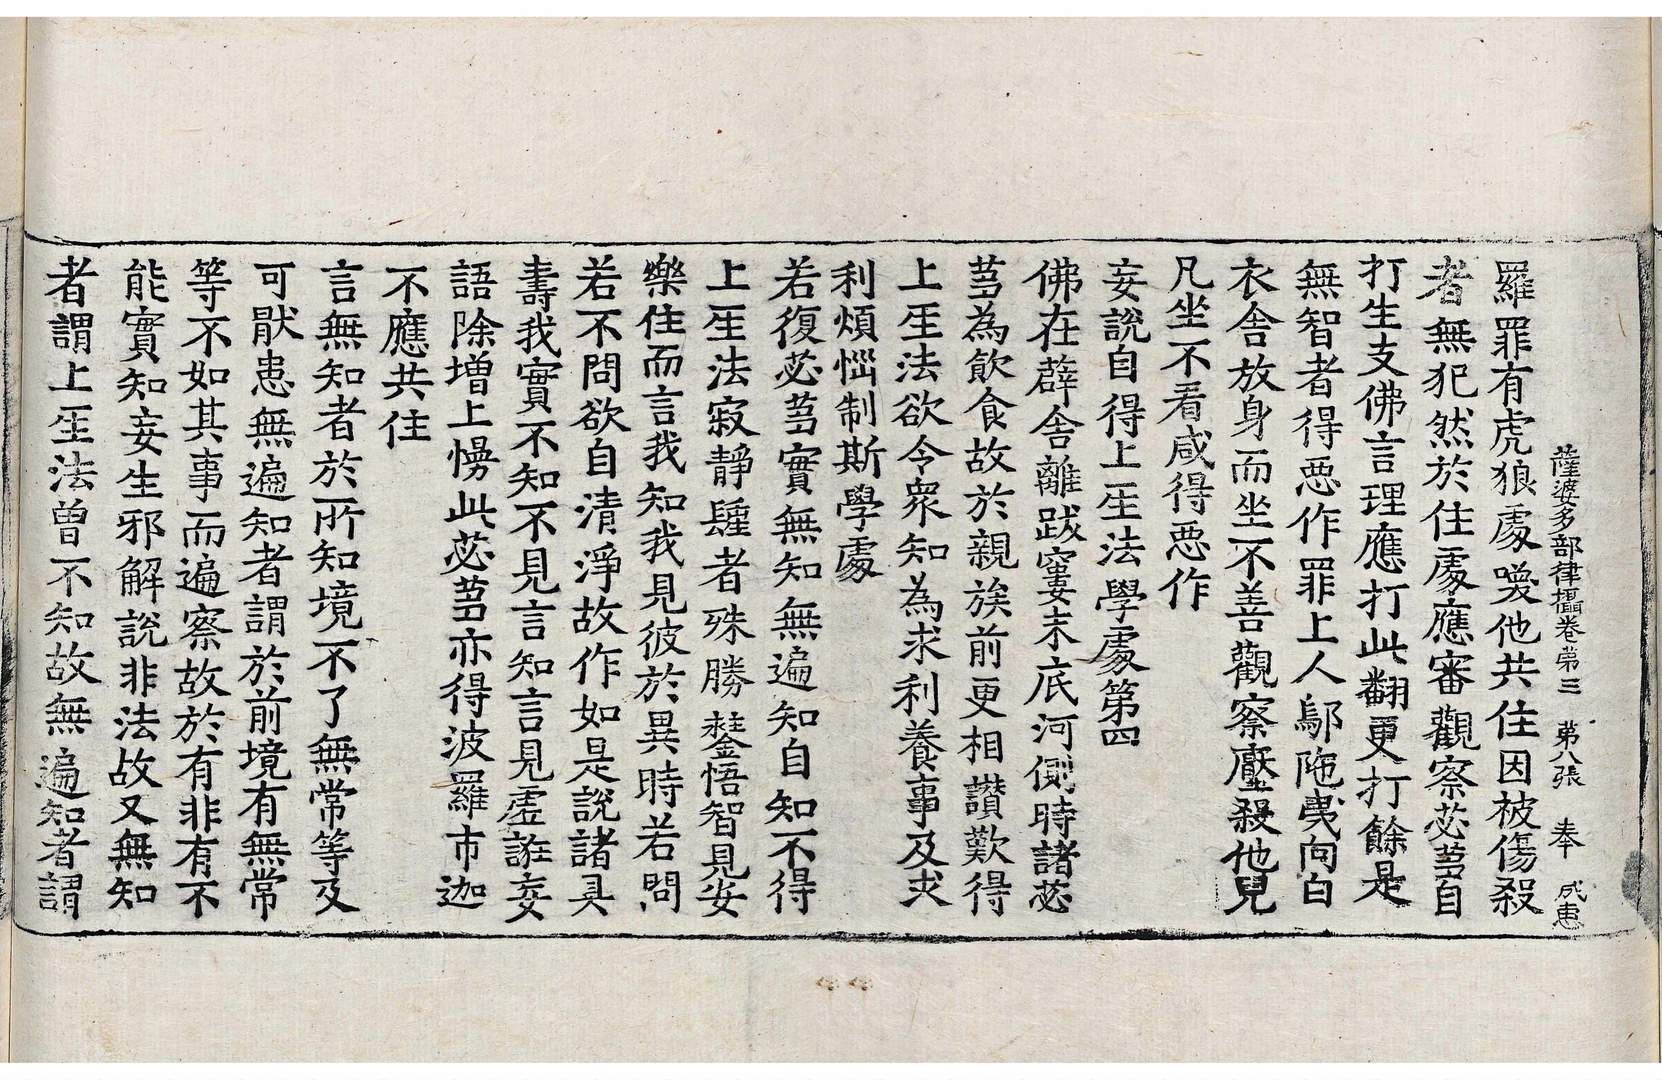 薩婆多部律攝卷第三 第八張 奉 成惠
羅罪有虎狼處喚他共住因被傷殺
者無犯然於住處應審觀察苾芻自
打生支佛言理應打此翻更打餘是
無智者得惡作罪上人鄔陁夷向白
衣舍放身而坐不善觀察壓殺他兒
凡坐不看咸得惡作
妄說自得上𤯔法學處第四
佛在薜舍離跋窶末底河側時諸苾
芻為飲食故於親族前更相讃歎得
上𤯔法欲令衆知為求利養事及求
利煩惱制斯學處
若復苾芻實無知無遍知自知不得
上𤯔法寂靜聖者殊勝證悟智見安
樂住而言我知我見彼於異時若問
若不問欲自清淨故作如是說諸具
壽我實不知不見言知言見虛誑妄
語除增上慢此苾芻亦得波羅市迦
不應共住
言無知者於所知境不了無常等及
可猒患無遍知者謂於前境有無常
等不如其事而遍察故於有非有不
能實知妄生邪解說非法故又無知
者謂上𤯔法曾不知故無遍知者謂